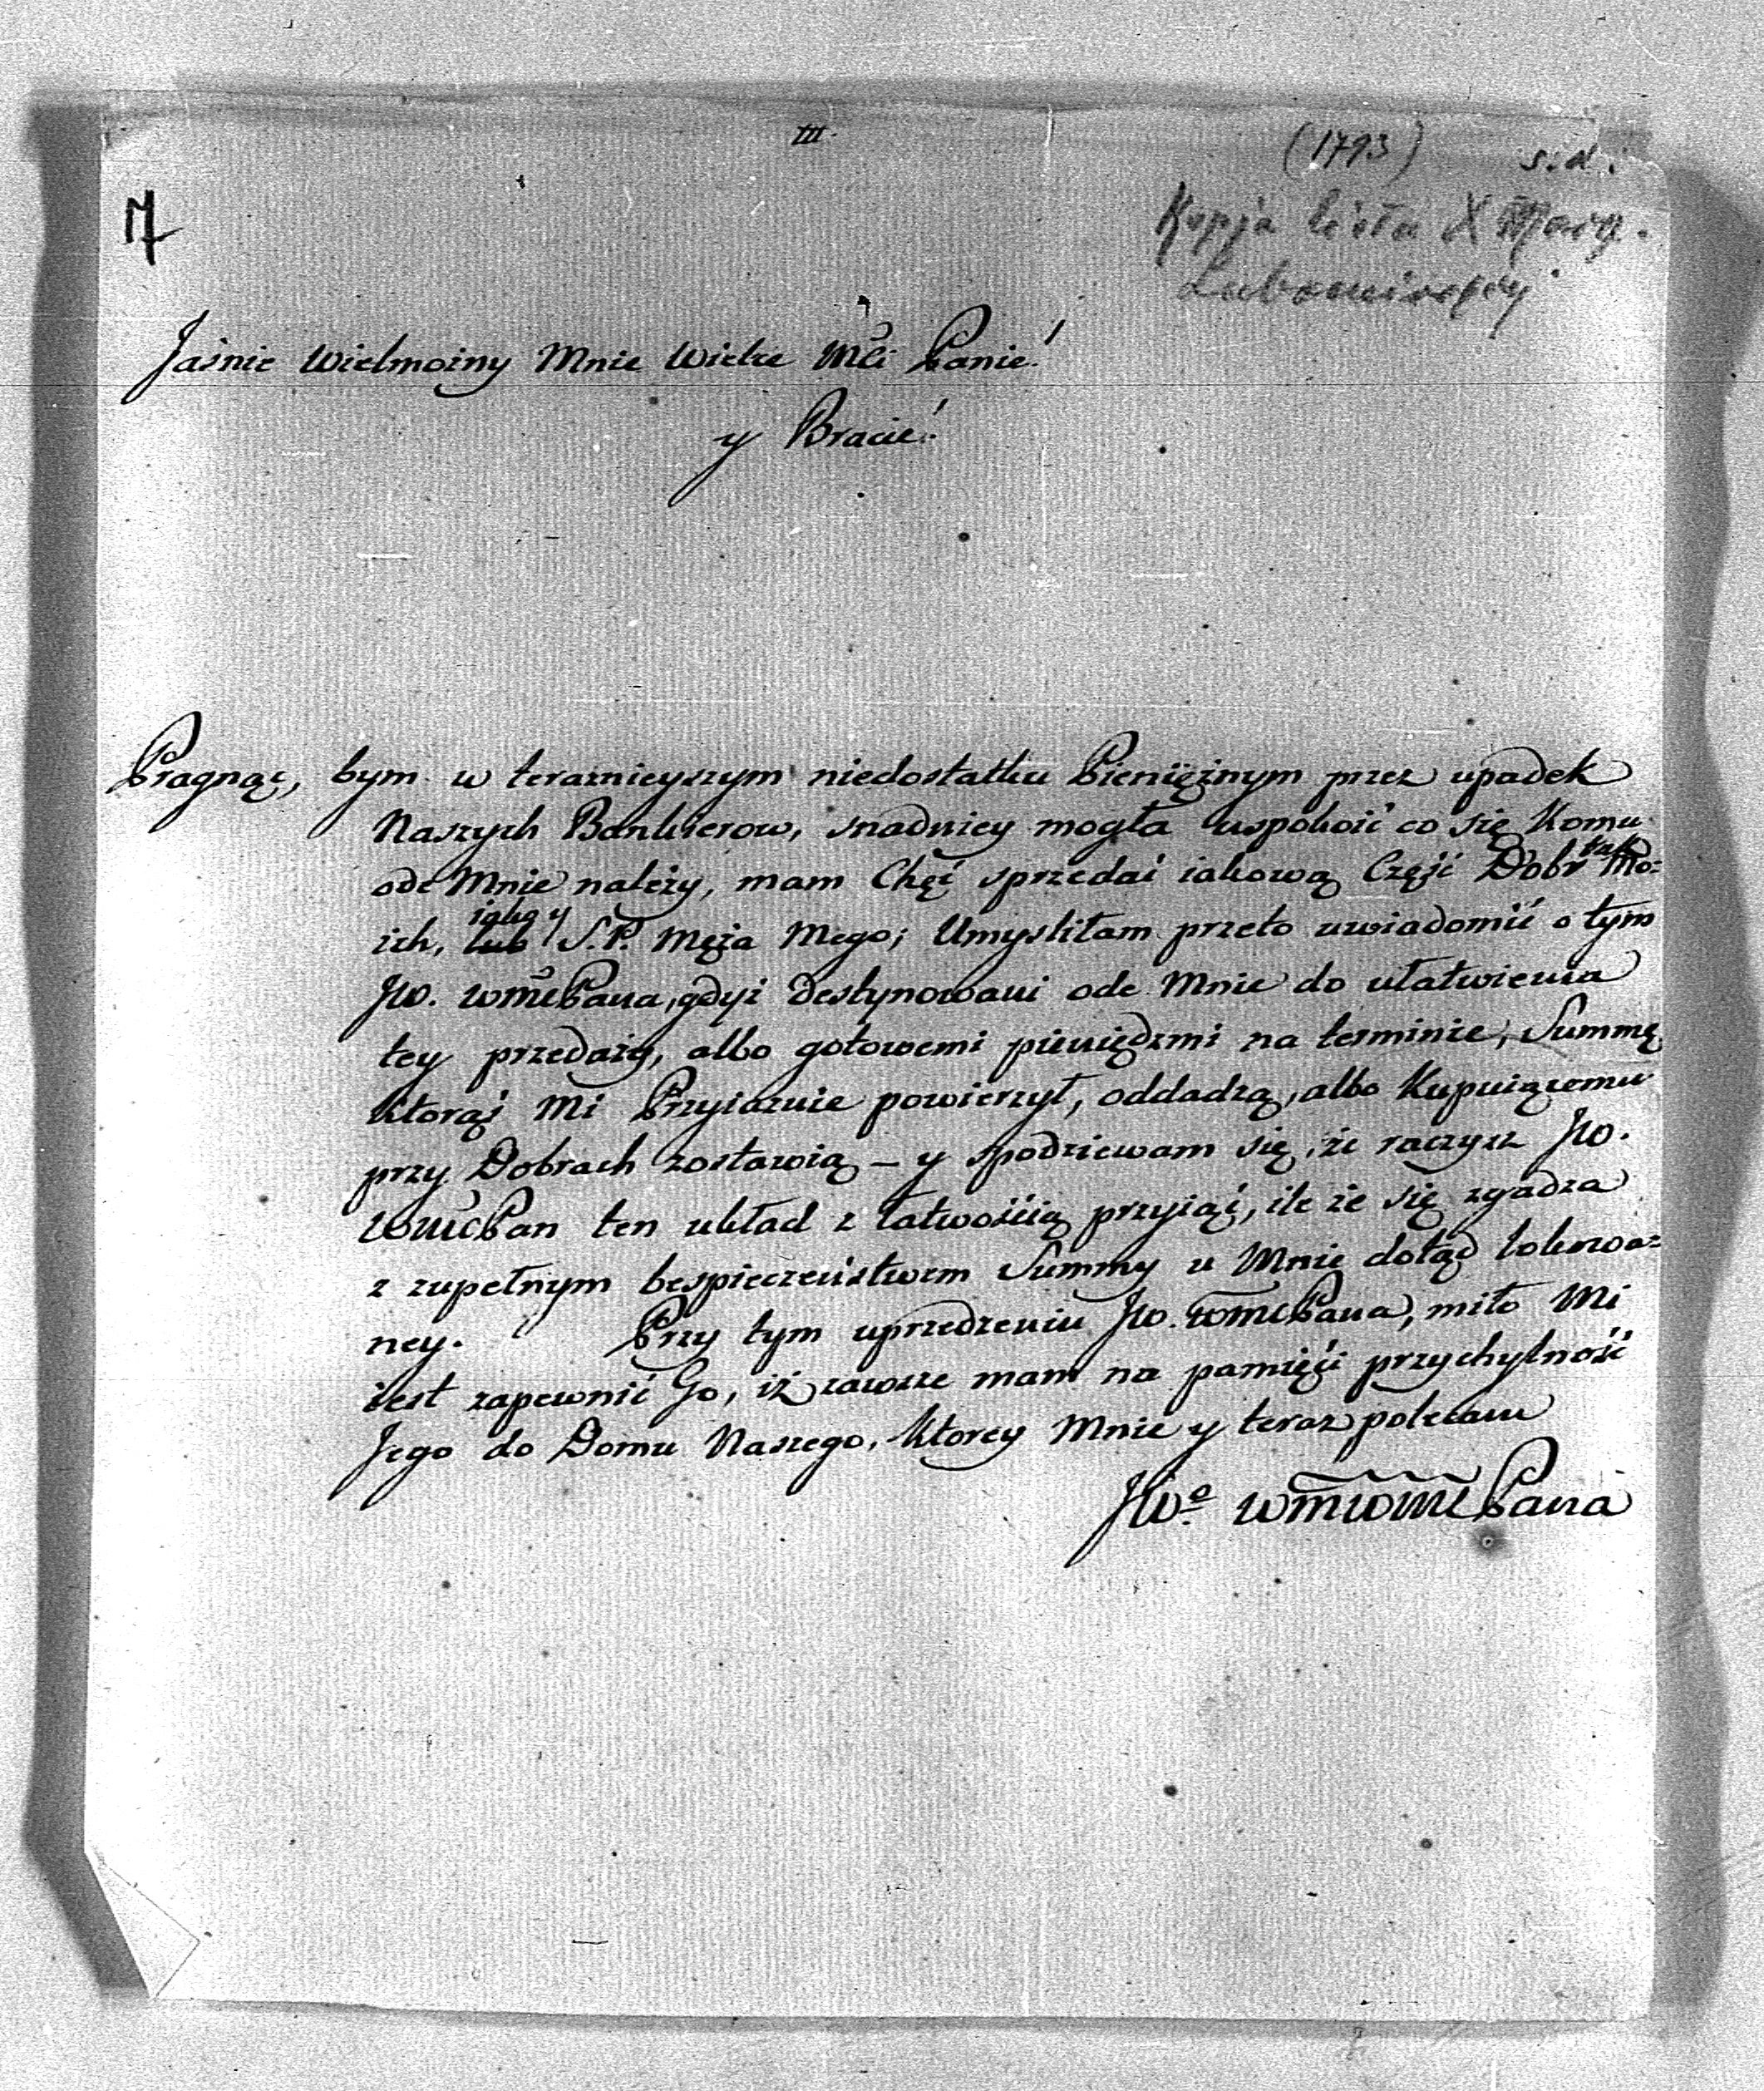 III.
(1793) s.d.
7
Kopja listu X Marsz.
Lubomirskiej
Jaśnie Wielmożny Mnie Wielce Mći Panie!
y Bracie!
Pragnąc, bym w teraznieyszym niedostatku Pieniężnym przez upadek
Naszych Bankierow, snadniey mogła uspokoić co się Komu
ode Mnie należy, mam Chęć sprzedać iakową Część Dobr tak Mo=
ich, iako y S.P. Męża Mego; Umyśliłam przeto uwiadomić o tym
JW. WMćPana, gdyż Destynowani ode Mnie do ułatwienia
tey przedaży, albo gotowemi pieniędzmi na terminie, Summę
ktorąś Mi Przyiaznie powierzył, oddadzą, albo Kupuiącemu
przy Dobrach zostawią – y spodziewam się, że raczysz JW.
WMćPan ten układ z łatwością przyiąć, ile że się zgadza
z zupełnym bespieczeństwem Summy u Mnie dotąd lokowa=
ney. Przy tym uprzedzeniu JW. WMćPana, miło Mi
iest zapewnić Go, iż zawsze mam na pamięci przychylność
Jego do Domu Naszego, Ktorey Mnie y teraz polecam
JWo. WMWMćPana